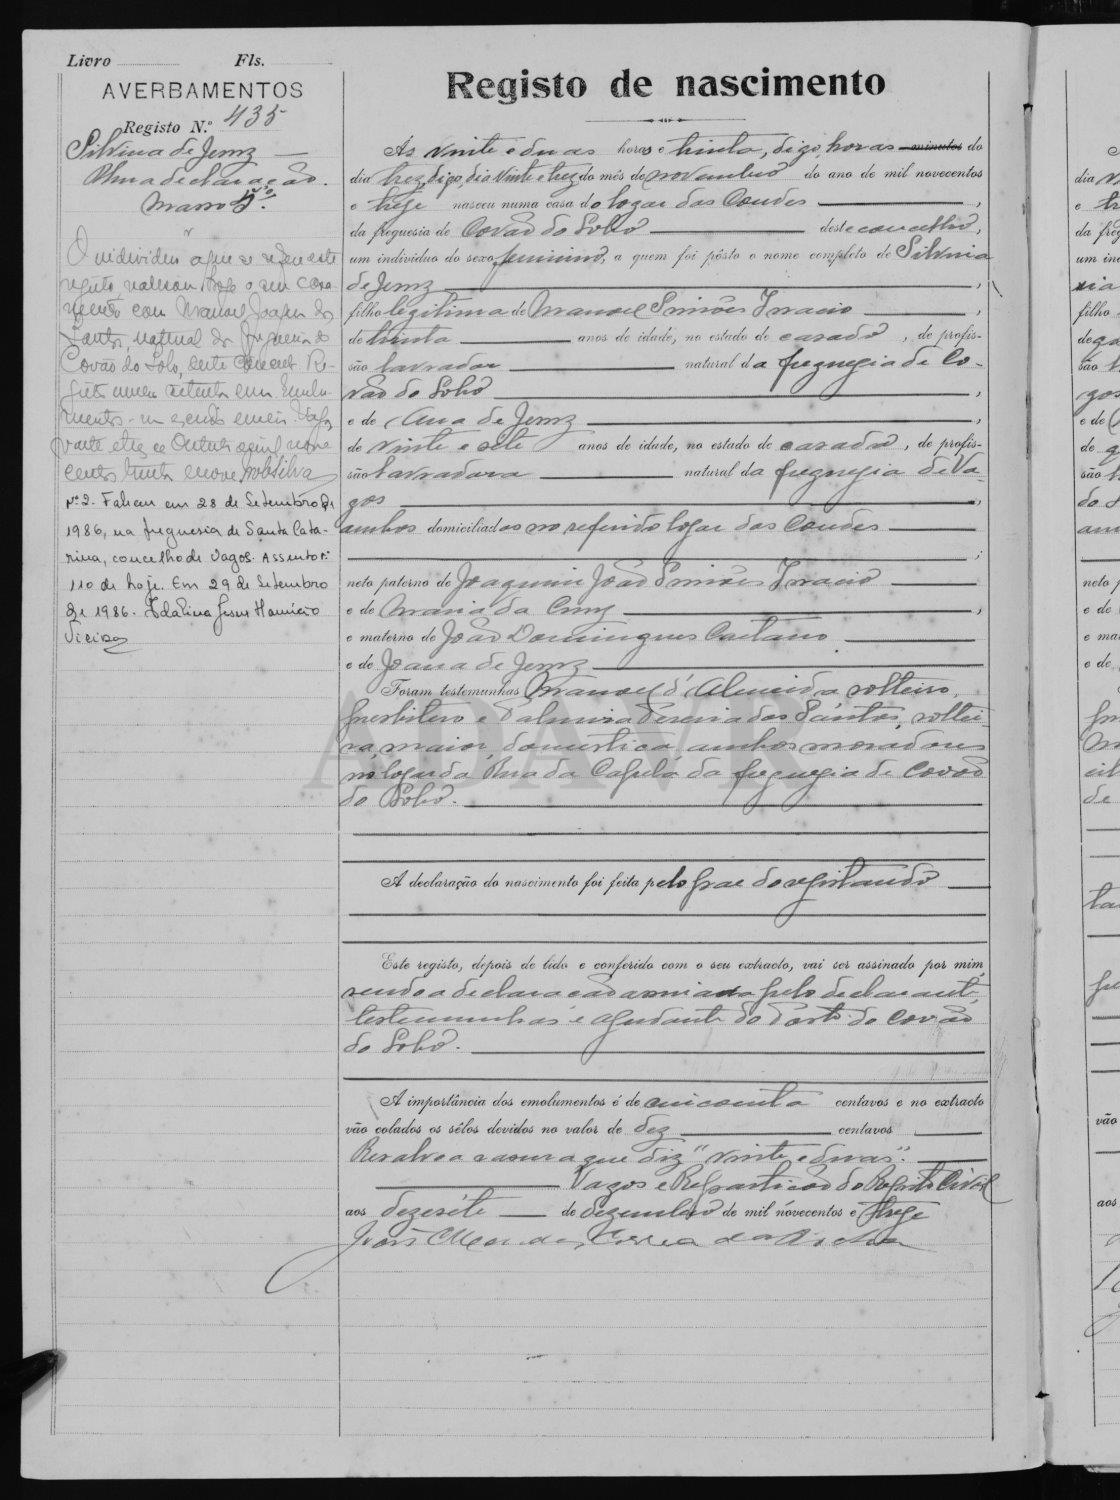 Livro Fls.
AVERBAMENTOS
Registo N.º 435
Silvina de Jesuz
Uma declaração.
Masso 5º.
O individuo a que se refere este
registo realisou hoje o seu casa
mento com Manuel Joaquim dos
Santos, natural da freguesia do
Covão do Lobo, deste concelho. Re-
gisto numero setenta e um. Emolu-
mentos
vinte e tres de Outubro de mil nove
centos trinta e nove
Nº 2. Faleceu em 28 de Setembro de
1986, na freguesia de Santa Cata-
rina, concelho de Vagos. Assento nº
110 de hoje. Em 29 de Setembro
de 1986. Idalina Jesus Honório
Vieira
Registo de nascimento
Ás vinte e duas horas e trinta, digo, horas minutos do
dia trez, digo, dia vinte e trez do mês de novembro do ano de mil novecentos
e treze nasceu numa casa do logar das Condes,
da freguesia de Covão do Lobo deste concelho,
um individuo do sexo feminino, a quem foi pôsto o nome completo de Silvina
de Jesuz,
filho legitima de Manoel Simões Inacio,
de trinta anos de idade, no estado de casado, de profis-
são lavrador natural da freguezia de Co-
vão do Lobo,
e de Ana de Jesuz,
de vinte e sete anos de idade, no estado de casada, de profis-
são lavradora natural da freguezia de Va-
gos,
ambos domiciliados no referido logar das Condes
;
neto paterno de Joaquim João Simões Inacio
e de Maria da Cruz,
e materno de João Domingues Caetano
e de Joana de Jesuz
Foram testemunhas Manoel d'Almeida solteiro,
presbitero e Palmira Pereira dos Santos, soltei-
ra, maior, domestica, ambos moradores
no logar da Rua da Capela da freguezia de Covão
do Lobo.
A declaração do nascimento foi feita pelo pae do registando
Este registo, depois de lido e conferido com o seu extracto, vai ser assinado por mim,
sendo a declaração assinada pelo declarante,
testemunhas e ajudante do Posto do Covão
do Lobo.
A importância dos emolumentos é de cincoenta centavos e no extracto
vão colados os sêlos devidos no valor de dez centavos
Resalvo a rasura que diz "vinte e duas".
Vagos e Repartição do Registo Civil
aos dezesete de dezembro de mil novecentos e treze
João Mendes Correia da Rocha
ADAVR